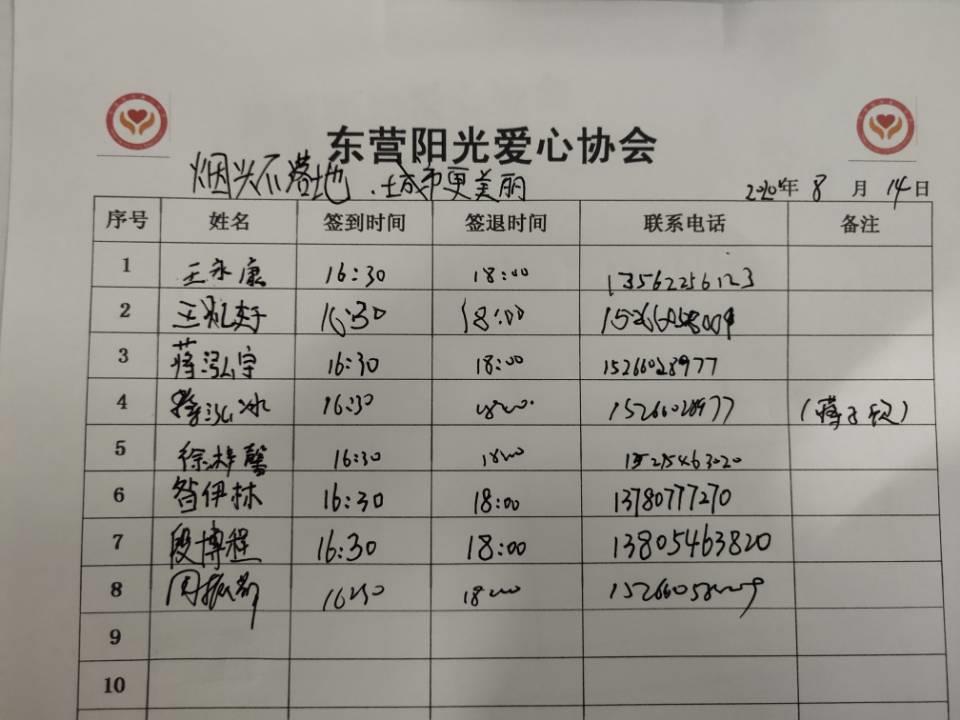 东营阳光爱心协会
烟头不落地.城市更美丽 2020年 8 月 14 日
序号 姓名 签到时间 签退时间 联系电话 备注
1 王永康 16:30 18:00 13562256123
2 16:30 18:00
3 蒋泓宇 16:30 18:00 15266028977
4 蒋泓冰 16:30 18:00 15266028977
5 徐梓馨 16:30 18:00 15275463020
6 昝伊林 16:30 18:00 13780777270
7 段博程 16:30 18:00 13805463820
8 16:30 18:00
9
10